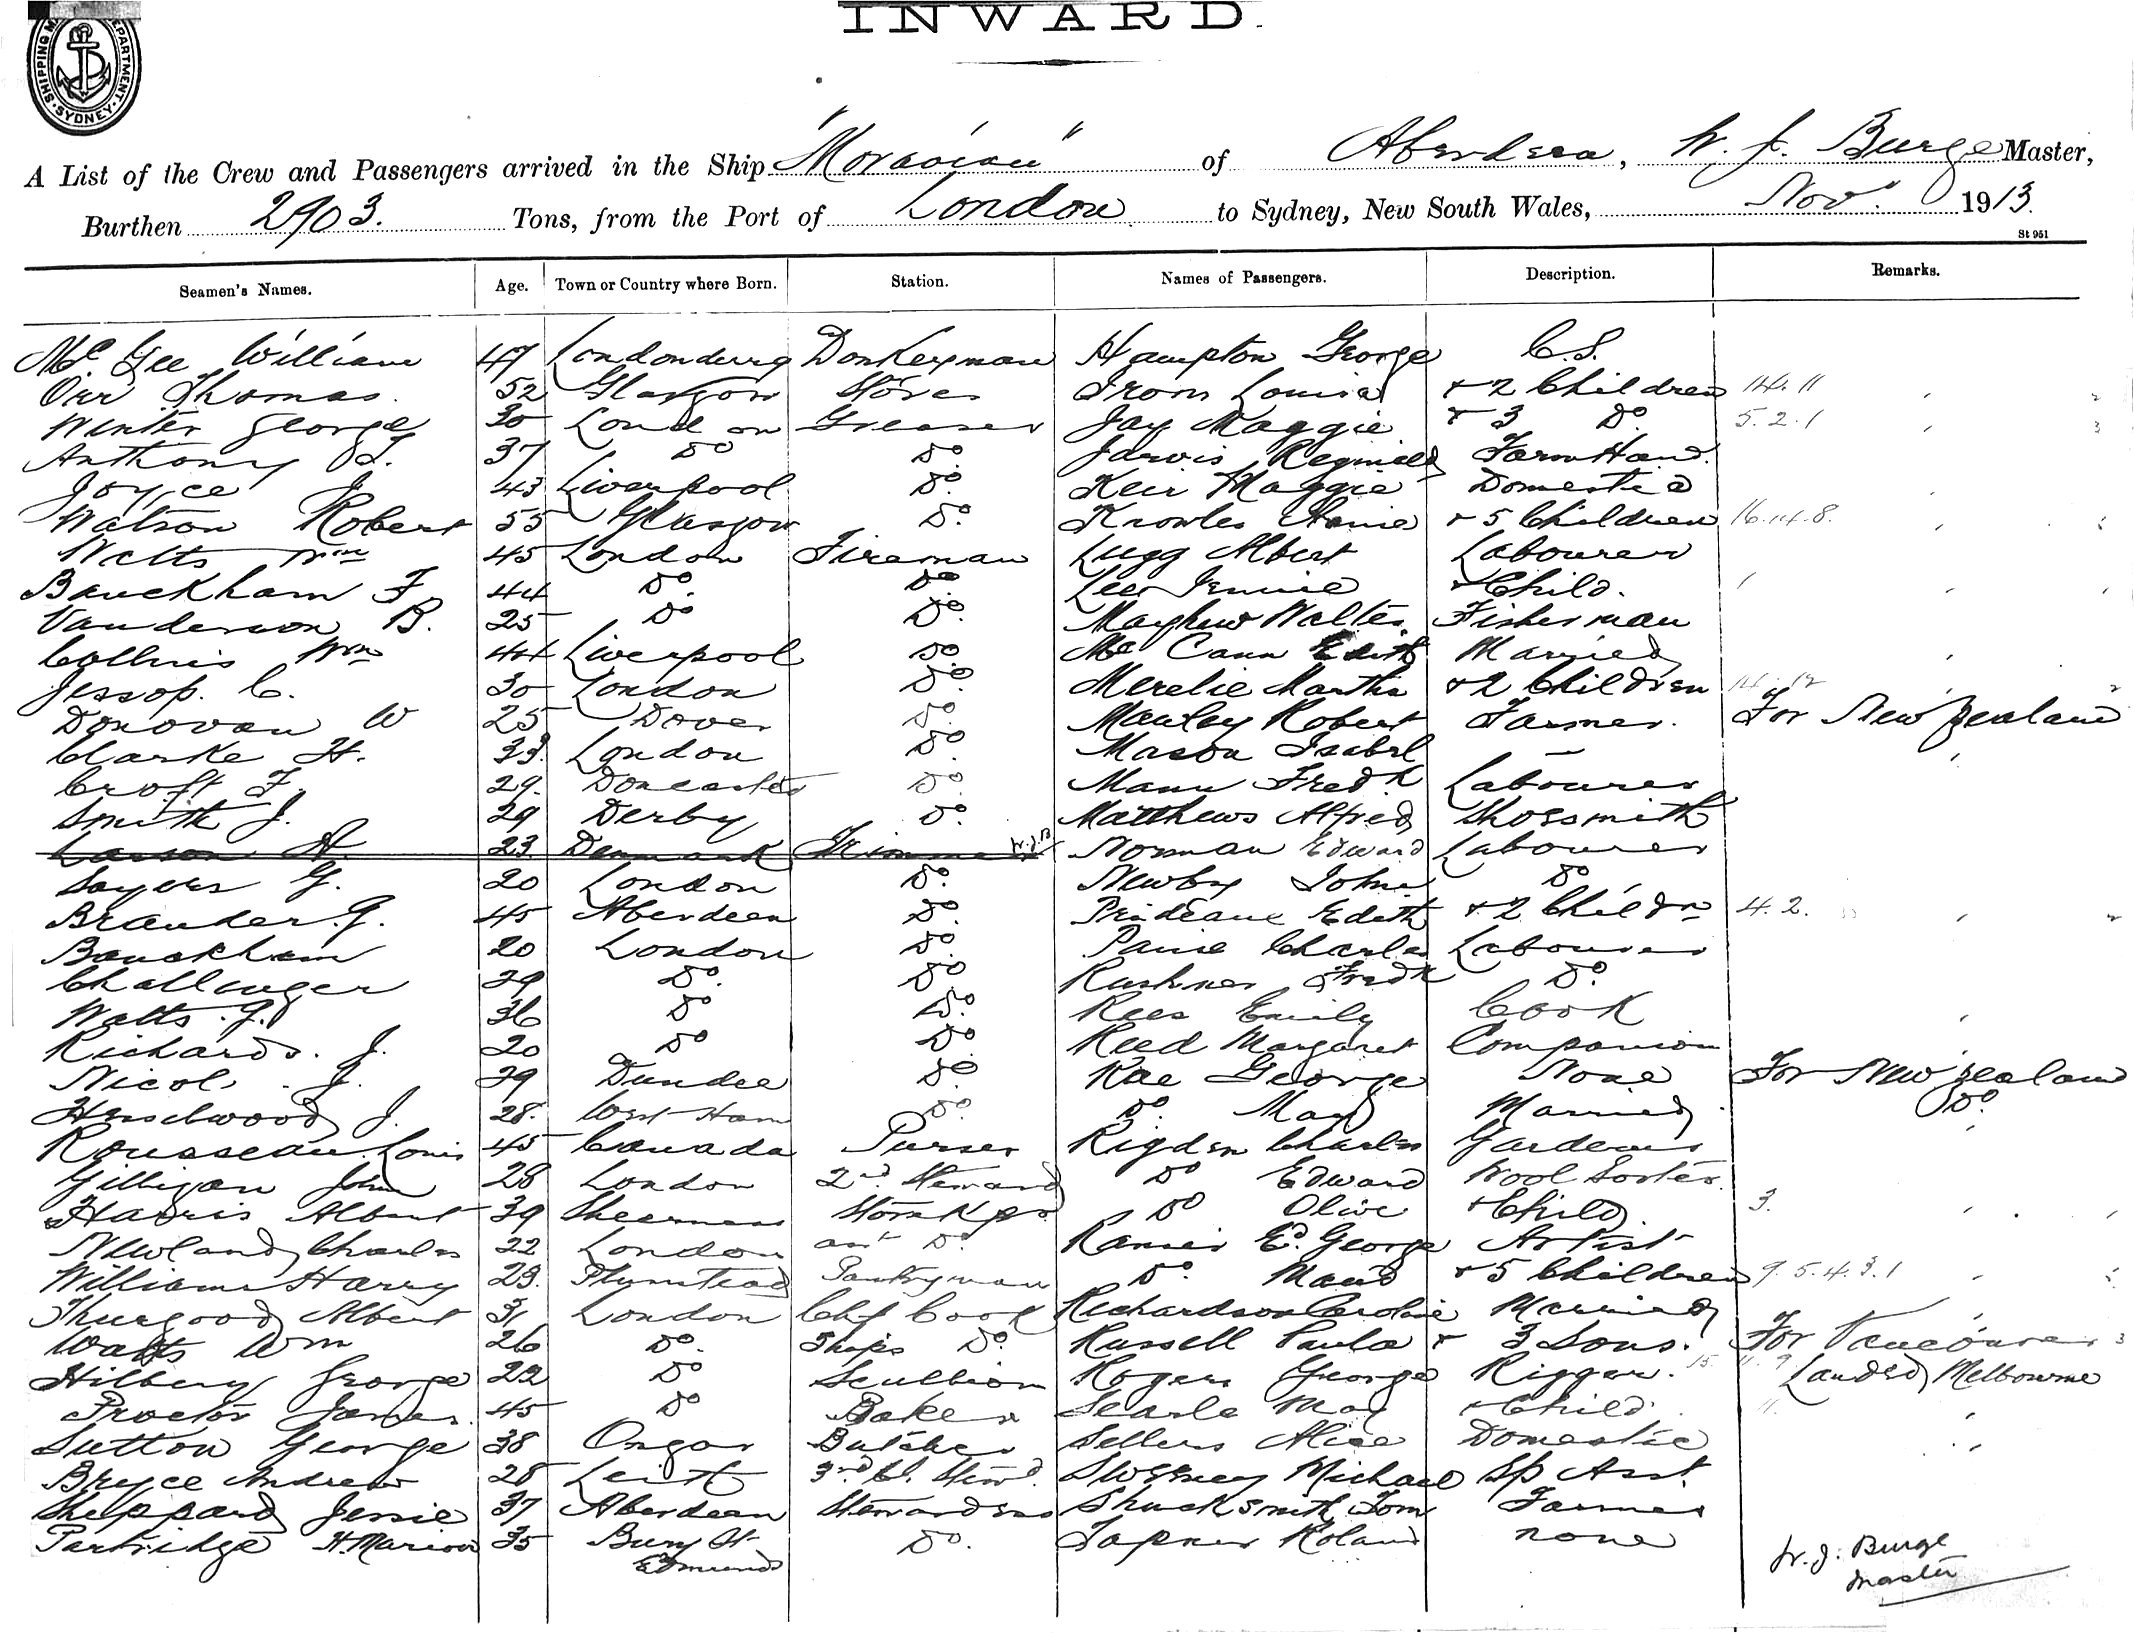 INWARD.
SHIPPING M DEPARTMENT. SYDNEY.
A List of the Crew and Passengers arrived in the Ship "Moravian" of Aberdeen, W. J. Burge Master,
Burthen 2903. Tons, from the Port of London to Sydney, New South Wales, Nov. 1913.
St 951
Seamen's Names. Age. Town or Country where Born. Station. Names of Passengers. Description. Remarks.
Mc Gee William 47 Londonderry Donkeyman Hampton George C.S.
Orr Thomas. 52 Glasgow Stores Irons Louisa + 2 Children 14. 11
Winter George 30 London Greaser Jay Maggie + 3 Do. 5. 2. 1
Anthony 37 Do Do. Jarvis Reginald Farm Hand.
Joyce J. 43 Liverpool Do. Keir Maggie Domestic
Watson Robert 55 Glasgow Do. Knowles Annie + 5 Children 16. 14. 8.
Watts Wm 45 London Fireman Lugg Albert Labourer
Bauckham F 44 Do. Do. Lee Jennie + Child.
Vanderson B. 25 Do Do. Mayhew Walter. Fisherman
Collins Wm 44 Liverpool Do. Mc Cann Edith Married
Jessop. C. 30 London Do. Merelie Martha + 2 Children 14. 12
Donovan W 25 Dover Do. Manley Robert Farmer. For New Zealand
Clarke H. 33. London Do. Mason Isabel —
Croft F. 29. Doncaster Do. Mann Fredk Labourer
Smith J. 29 Derby Do. Matthews Alfred Shoesmith
Larson H. 23. Denmark Trimmer W.J.B. Norman Edward Labourer
Sayers G. 20 London Do. Newby John Do
Brander. G. 45 Aberdeen Do. Prideaux Edith + 2 Childrn 4. 2.
Bauckham 20 London Do. Paine Charles Labourer
Challenger 29 Do. Do Rushmer Fredk Do.
Watts. G. 36 Do Do. Rees Emily Cook
Richards. J. 20 Do Do. Reed Margaret Companion
Nicol. J. 29 Dundee Do. Rae George None For New Zealand
Henselwood J. 28. West Ham Do. Do. May Married. Do.
Rousseau Louis 45 Canada Purser Rigden Charles Gardener
Gilligan John 28 London 2nd Steward Do Edward Wool Sorter.
Harris Albert 39 Sheerness Storekpr Do Olive + Child 3.
Newland Charles 22 London asst Do. Ed. George Artist
Williams Harry 23. Plumstead Pantryman Do. Maud + 5 Children 9. 5. 4. 3. 1
Thurgood Albert 31 London Chf Cook Richardson Caroline Married
Watts Wm 26 Do. Ships Do. Russell Paula + 3 Sons. For Vancouver
Hilbery George 22 Do Scullion Rogers George Rigger. 15. 11. 9 Landed Melbourne
Proctor James. 45 Do Baker Searle May + Child. 11.
Sutton George 38 Ongar Butcher Sellers Alice Domestic
Bryce Andrew 28 Leith 3rd Cl. Stewd. Sweeney Michael Sp Asst.
Sheppard Jessie 37 Aberdeen Stewardess Shucksmith Tom Farmer
Partridge H. Marion 35 Bury St Edmunds Do. Tapner Roland none
W. J. Burge
Master